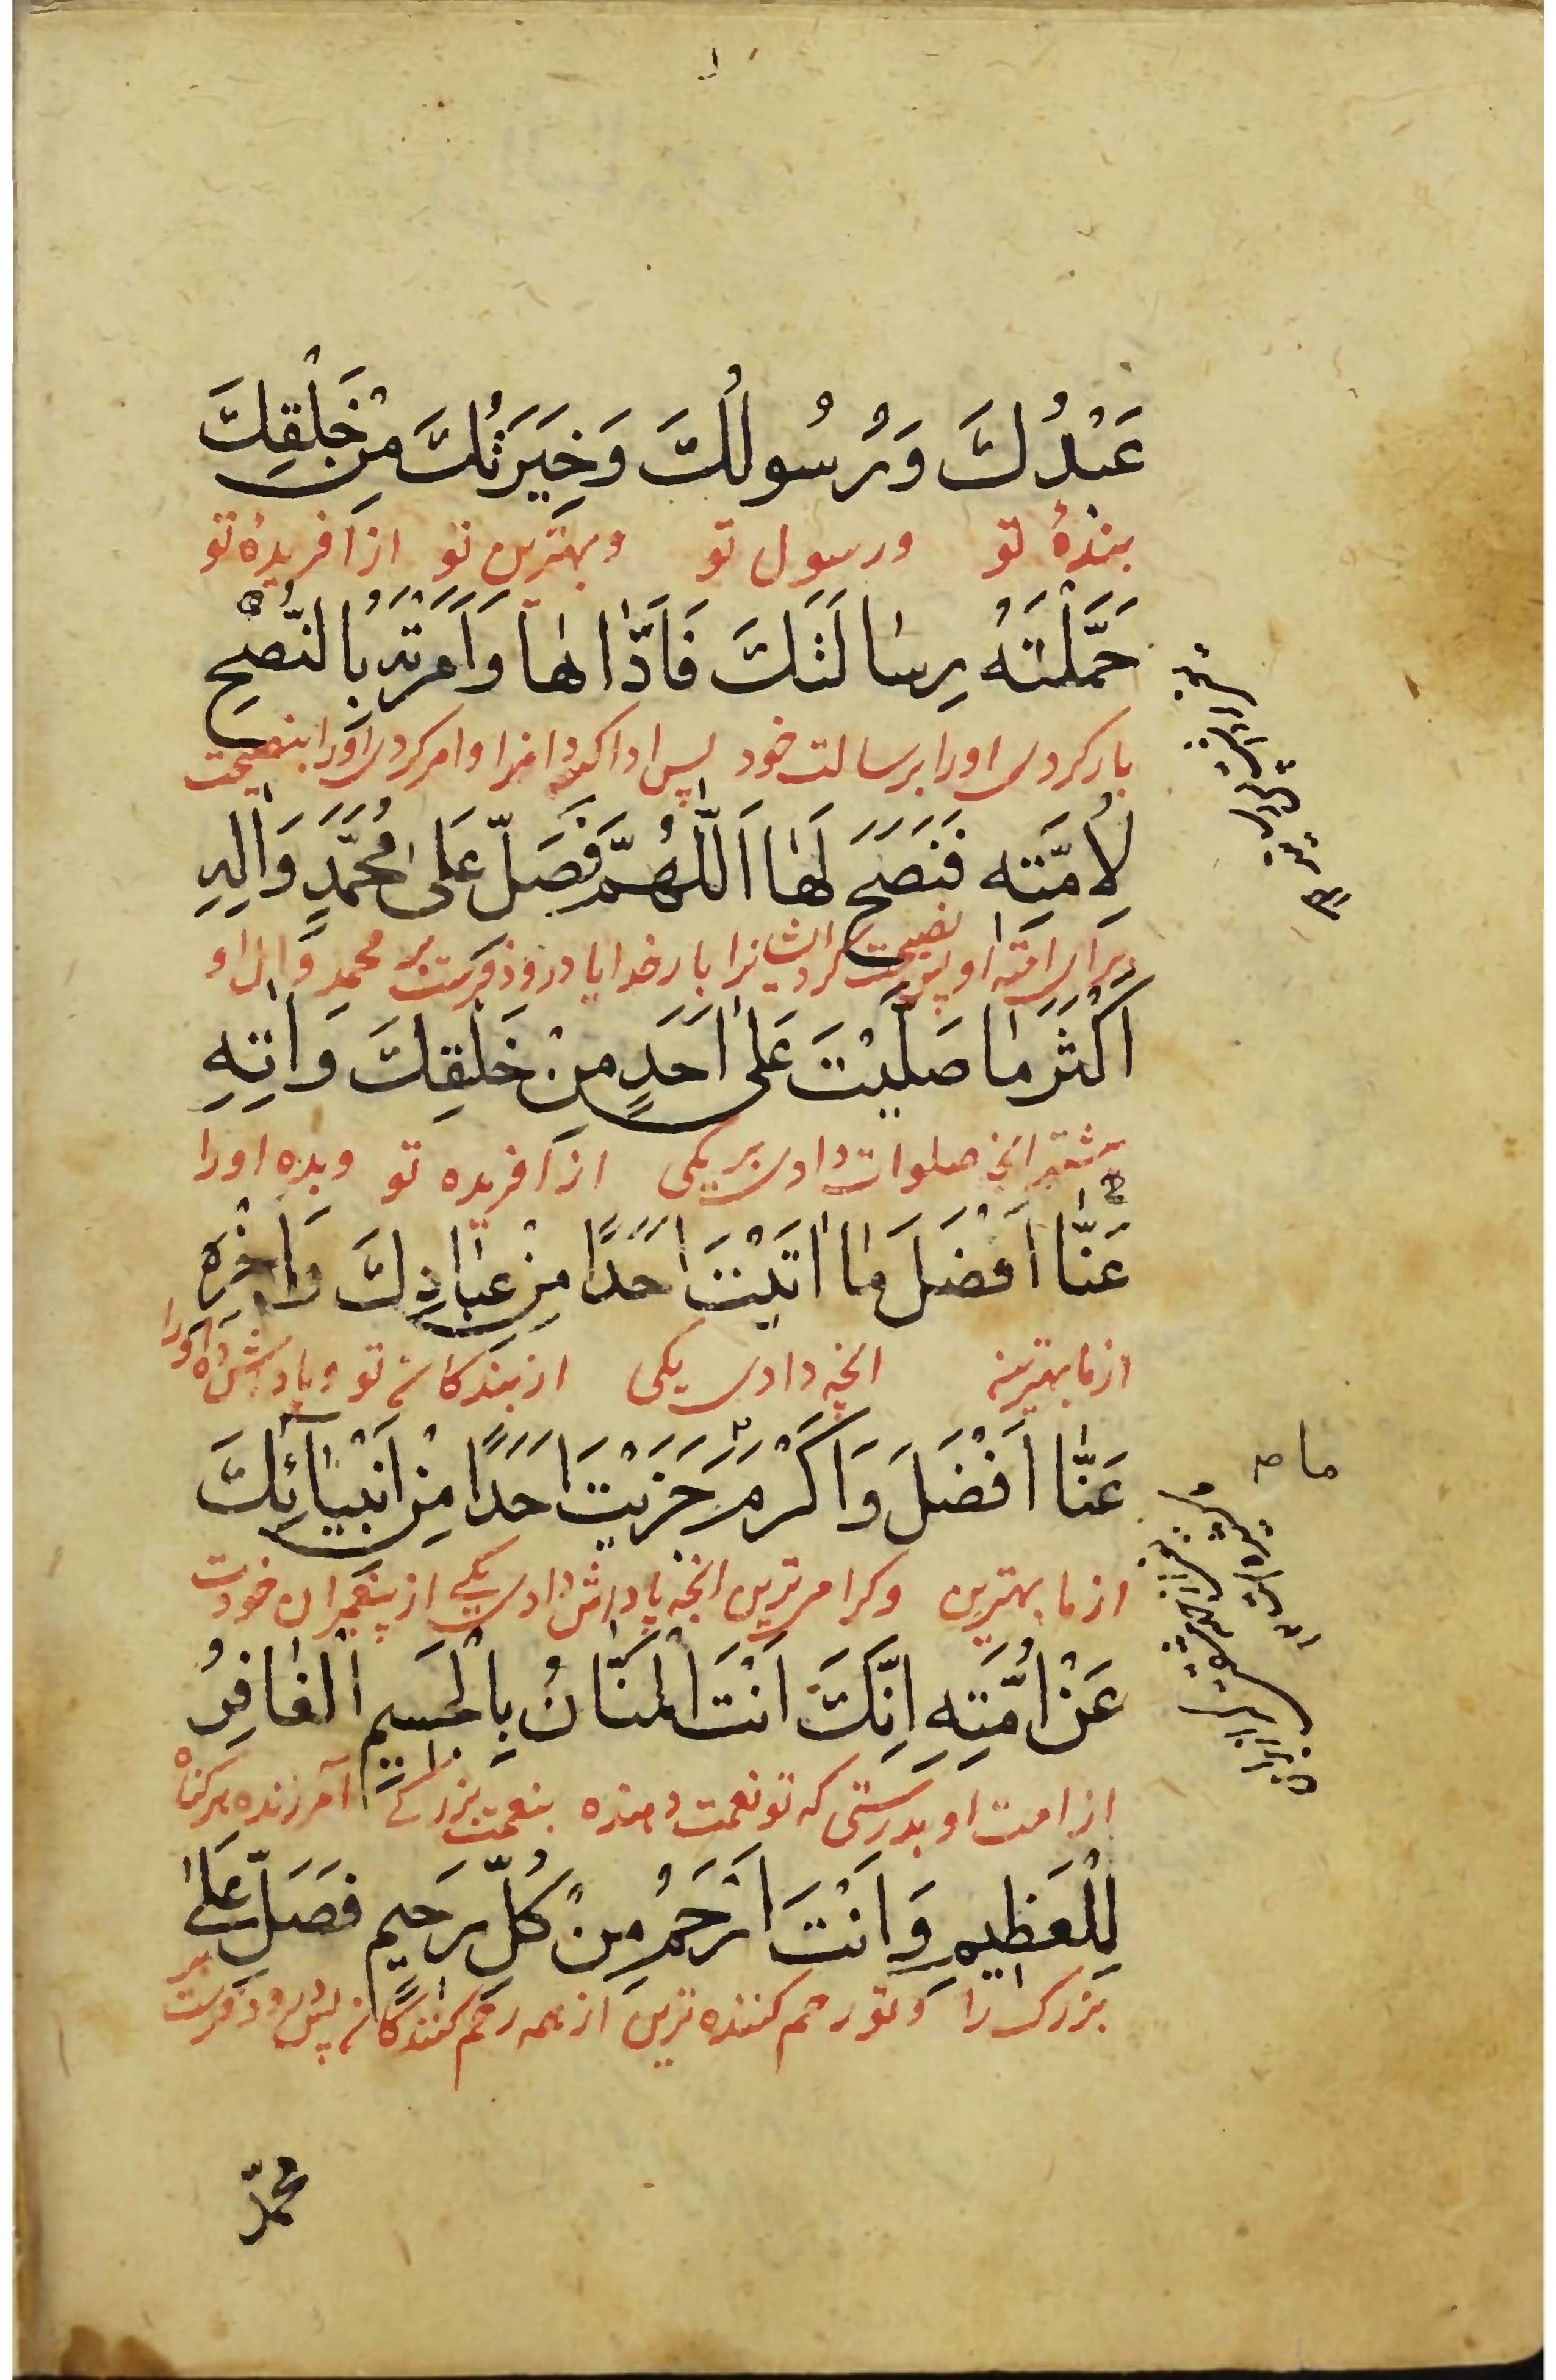 عَبْدُكَ وَرَسُولُكَ وَخِيَرَتُكَ مِنْ خَلْقِكَ
بندهٔ تو ورسول تو وبهترین تو از آفریدهٔ تو
حَمَّلْتَهُ رِسٰالَتَكَ فَاَدّٰاهٰا وَاَمَرْتَهُ بِالنُّصْحِ
بار کردی اورا برسالت خود پس ادا کرد انرا وامر کردی اورا بنصیحت
لِاُمَّتِهِ فَنَصَحَ لَهٰا اَللّٰهُمَّ فَصَلِّ عَلىٰ مُحَمَّدٍ وَاٰلِهِ
برای امته او پس نصیحت کرد ایشانرا بار خدایا درود فرست بر محمد وال او
اَكْثَرَ مٰا صَلَّيْتَ عَلىٰ اَحَدٍ مِنْ خَلْقِكَ وَاٰتِهِ
بیشتر انچه صلوات دادی بر یکی از آفریده تو وبده اورا
عَنّٰا اَفْضَلَ مٰا اٰتَيْتَ اَحَدًا مِنْ عِبٰادِكَ وَاَجْزِهِ
از ما بهترین انچه دادی یکی از بندکان تو وپاداش ده اورا
عَنّٰا اَفْضَلَ وَاَكْرَمَ جَزَيْتَ اَحَدًا مِنْ اَنْبِيٰآئِكَ
ما صح
از ما بهترین وکرامی ترین انچه پاداش دادی یکی از پیغمبران خودت
عَنْ اُمَّتِهِ اِنَّكَ اَنْتَ الْمَنّٰانُ بِالْجَسِيمِ الْغٰافِرُ
از امت او بدرستی که تو نعمت دهنده بنعمت بزرکی آمرزنده هر کناه
لِلْعَظِيمِ وَاَنْتَ اَرْحَمُ مِنْ كُلِّ رَحِيمٍ فَصَلِّ عَلىٰ
بزرک را وتو رحم کننده ترین از همه رحم کنندکان پس درود فرست بر
محمّد